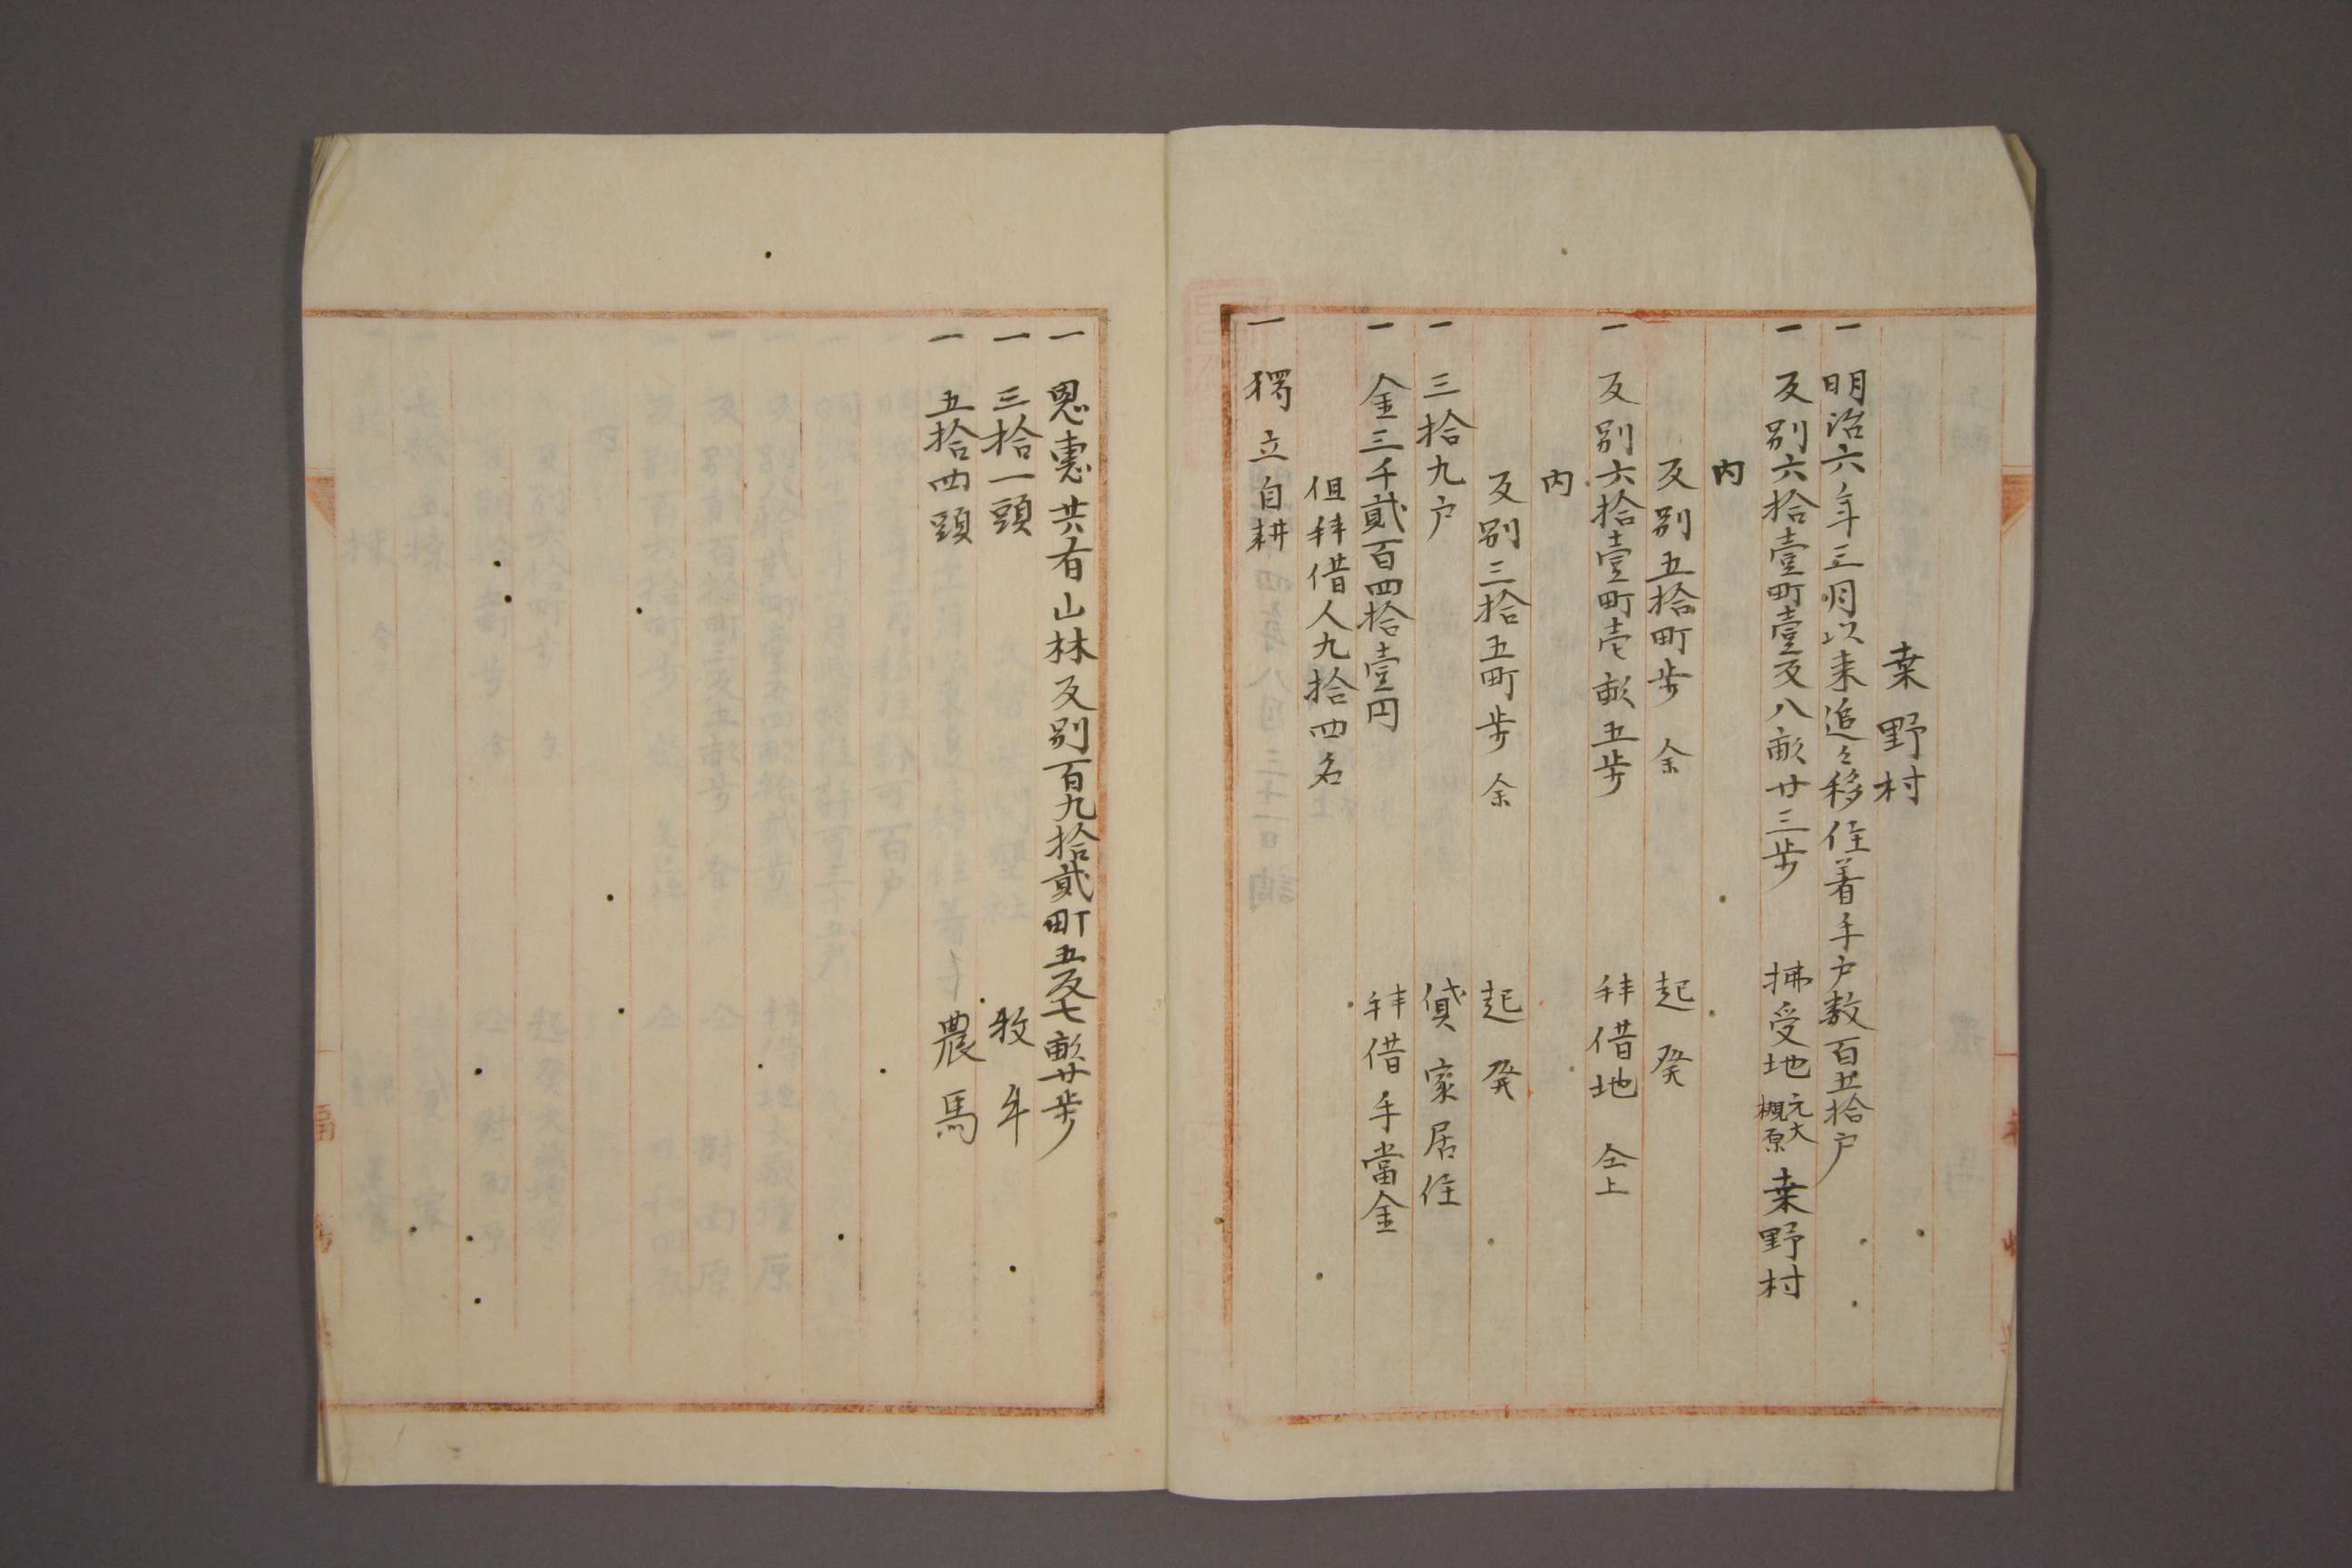 桒野村
一 明治六年三月以来追々移住着手戸数百五拾戸
一 反別六拾壹町壹反八畝廿三歩 拂受地 元大槻原 桒野村
内
反別五拾町歩余 起発
一 反別六拾壹町壱畝五歩 拝借地 仝上
内
反別三拾五町歩余 起発
一 三拾九戸 貸家居住
一 金三千貳百四拾壹円 拝借手當金
但拝借人九拾四名
一 獨立自耕
一 恩恵共有山林反別百九拾貳町五反七畝廿歩
一 三拾一頭 牧牛
一 五拾四頭 農馬